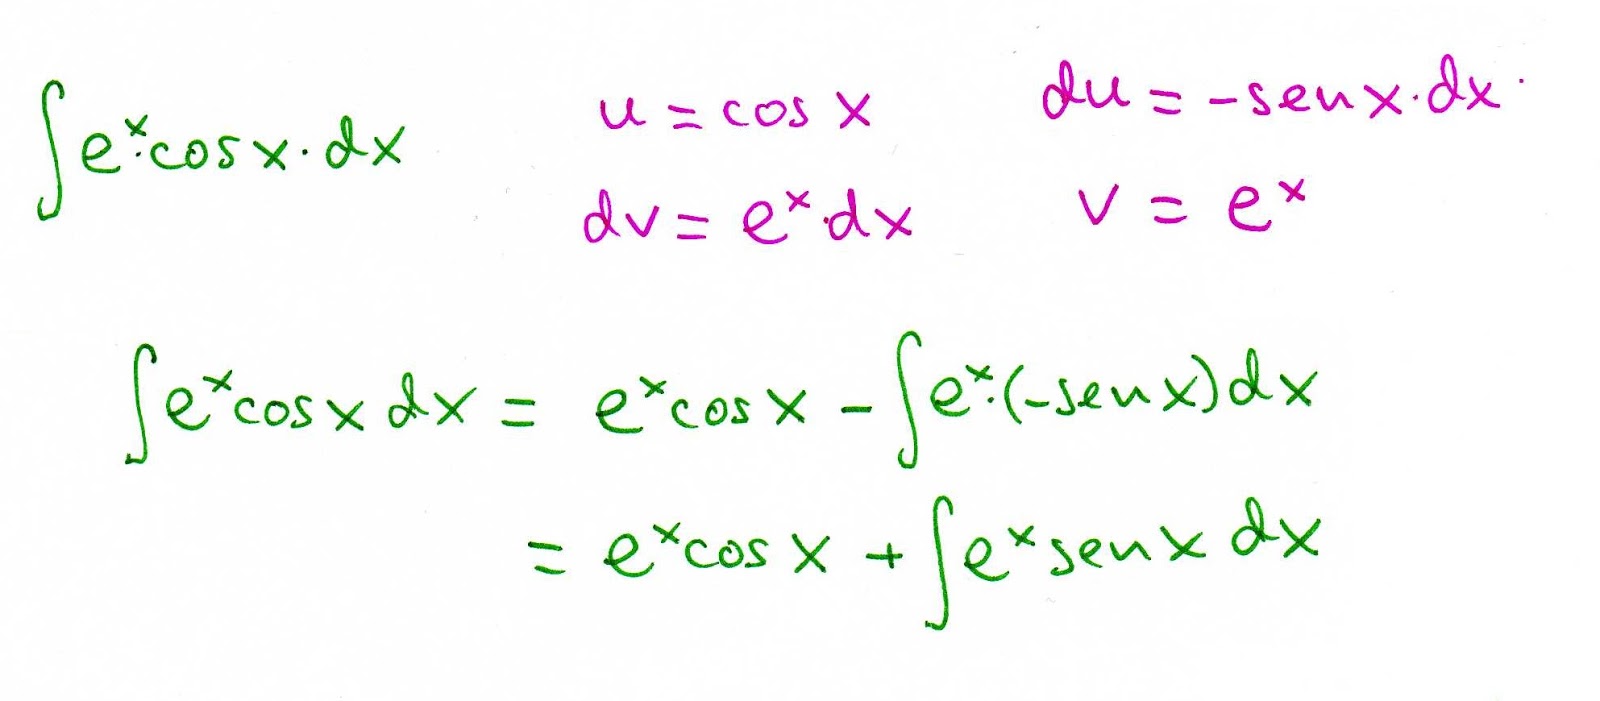 ∫eˣ·cos x·dx   u = cos x   du = -sen x·dx·
dv = eˣ·dx   v = eˣ
∫eˣ cos x dx = eˣ cos x - ∫eˣ·(-sen x) dx
= eˣ cos x + ∫eˣ sen x dx